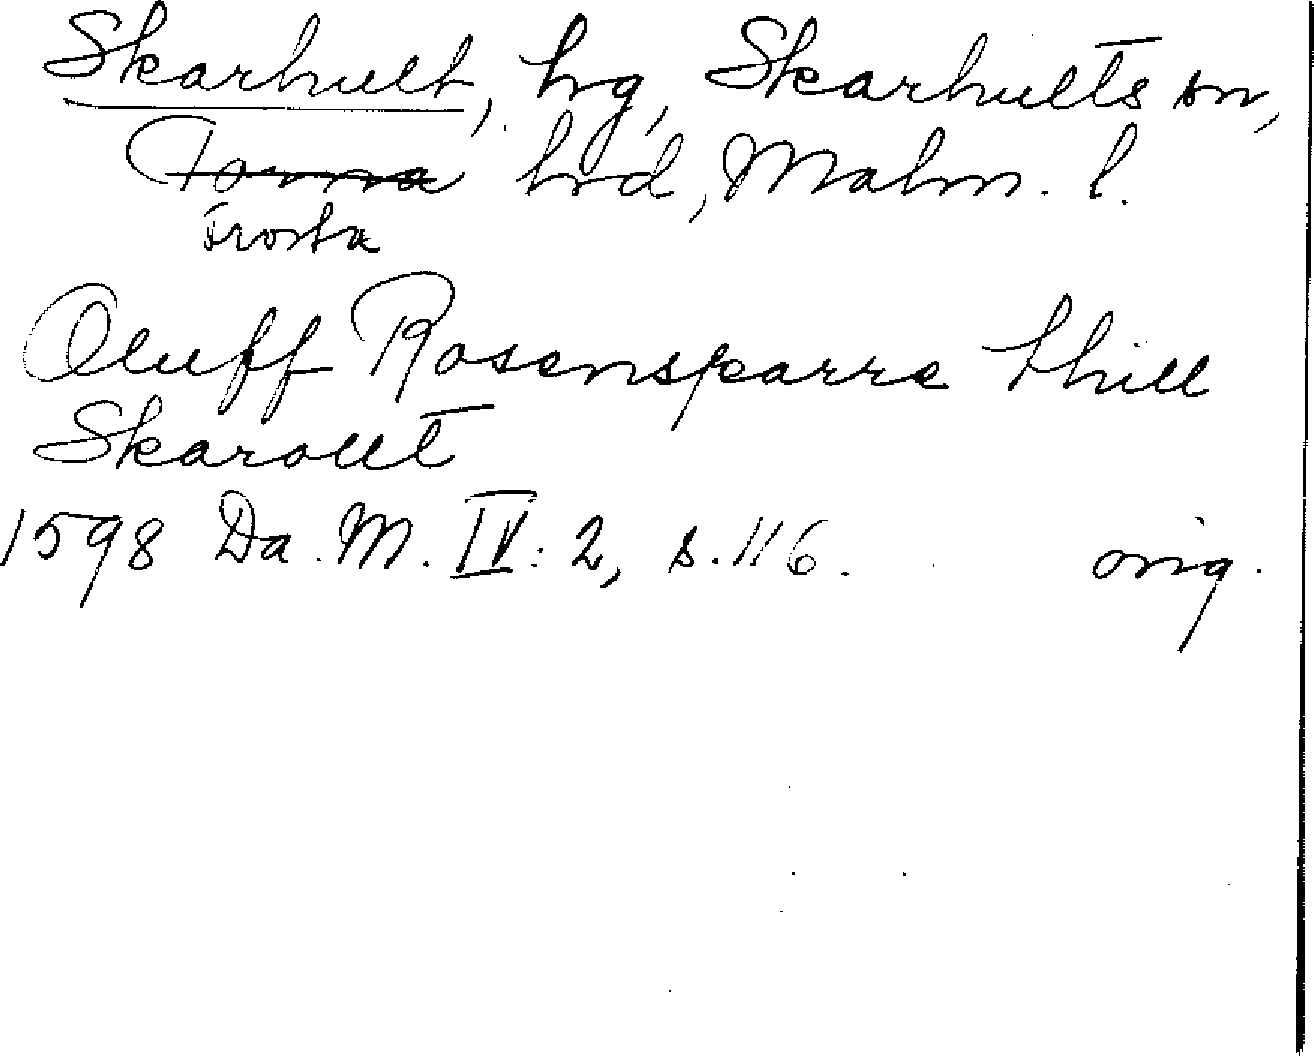 Skarhult, hg, Skarhults sn,
Torna hrd, Malm. l.
Frosta
Oluff Rosensparre thill
Skarollt
1598 Da. M. IV: 2, s. 116. orig.